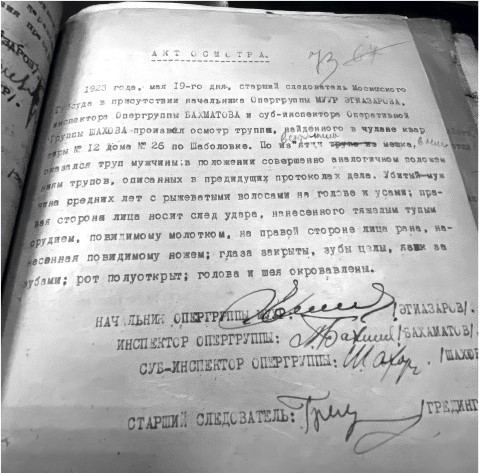 АКТ ОСМОТРА.
73 64
1923 года, мая 19-го дня, старший следователь Мосвиского
Губсуда в присутствии начальника Опергруппы МУУР ЭГИАЗАРОВА,
инспектора Опергруппы БАХМАТОВА и суб-инспектора Оперативной
Группы ШАХОВА-произвел осмотр труппа, найденного в чулане квар
тиры № 12 дома № 26 по Шаболовке. По из'ятии трупа из мешка, в нем
оказался труп мужчины:в положении совершенно аналогичном положен
иям трупов, описанных в предидущих протоколах дела. Убитый-муж
чина средних лет с рыжеватыми волосами на голове и усами; пра-
вая сторона лица носит след удара, нанесенного тяжелым тупым
орудием, повидимому молотком, на правой стороне лица рана, на-
несенная повидимому ножем; глаза закрыты, зубы целы, язык за
зубами; рот полуоткрыт; голова и шея окровавлены.
НАЧАЛЬНИК ОПЕРГРУППЫ: /ЭГИАЗАРОВ/.
ИНСПЕКТОР ОПЕРГРУППЫ: Бахмат /БАХАМАТОВ/
СУБ-ИНСПЕКТОР ОПЕРГРУППЫ: Шахов /ШАХОВ
СТАРШИЙ СЛЕДОВАТЕЛЬ: /ГРЕДИНГ